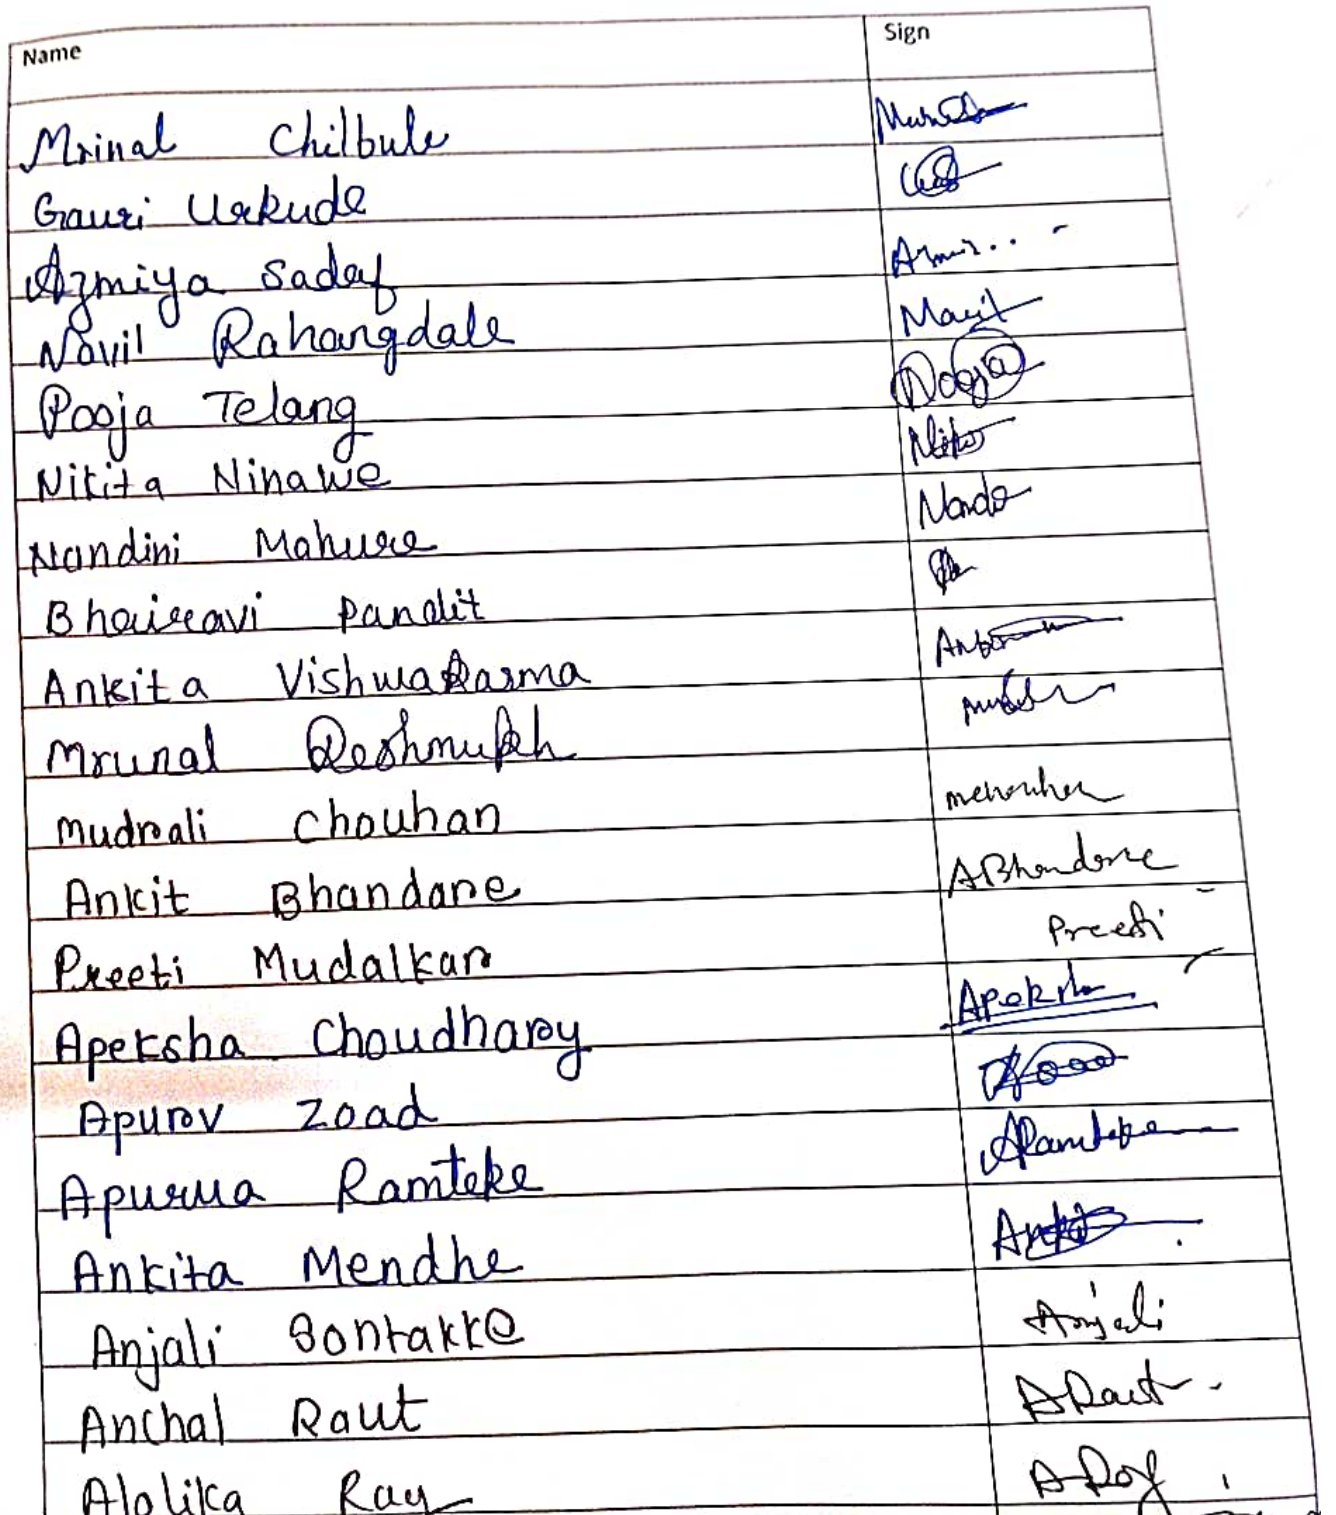 Name Sign
Mrinal Chilbule
Gauri Urkude
Azmiya Sadaf
Navil Rahangdale
Pooja Telang Pooja
Nikita Ninawe
Nandini Mahure
Bhairavi Pandit
Ankita Vishwakarma
Mrunal Deshmukh
Mudrali Chouhan
Ankit Bhandare ABhandare
Preeti Mudalkar Preeti
Apeksha Choudhary Apeksha
Apurv Zoad
Apurva Ramteke ARamteke
Ankita Mendhe Ankita
Anjali Sontakke Anjali
Anchal Raut ARaut
Alolika Ray ARay